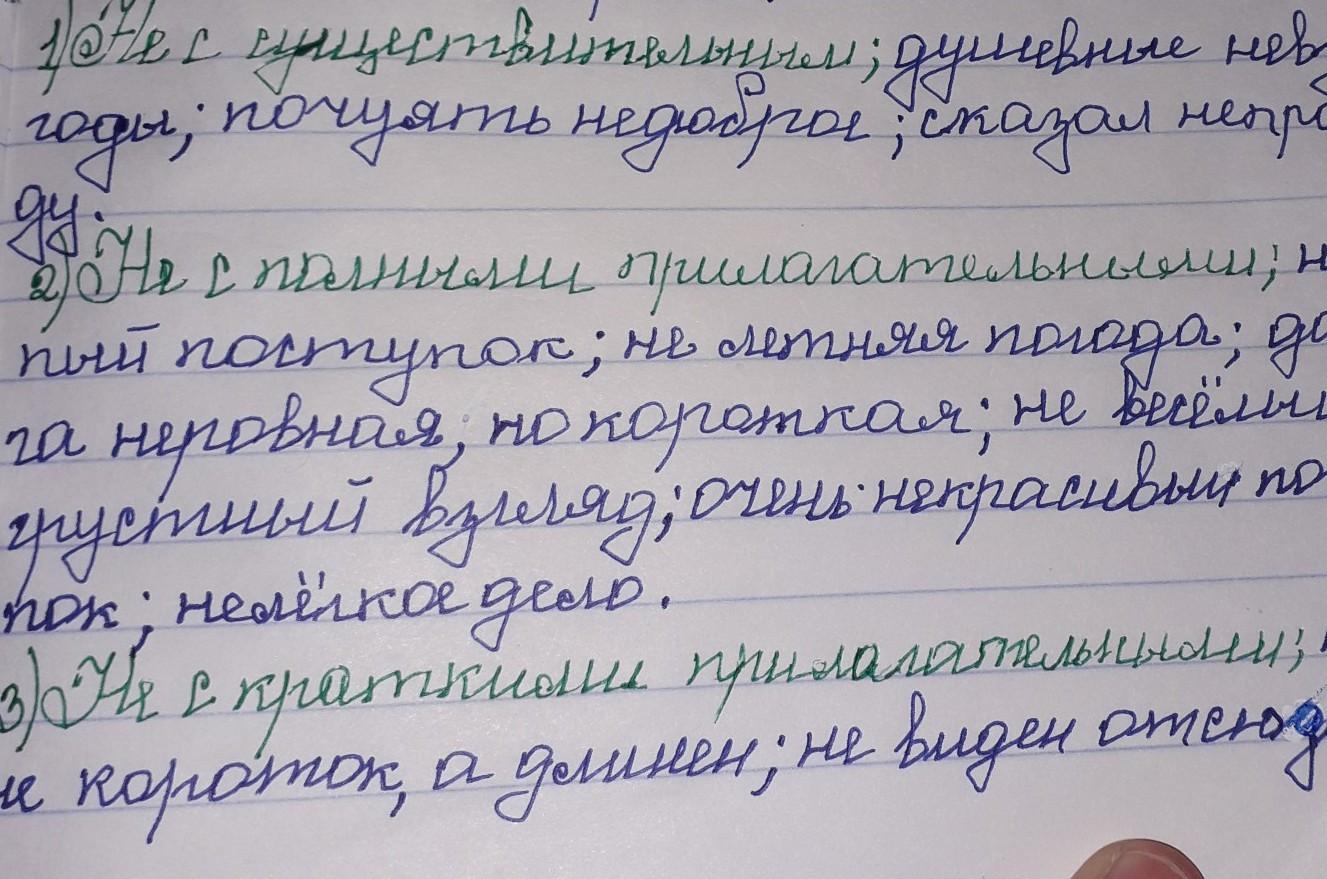 1) Не с существительным; душевные нев
годы; почуять недоброе; сказал непра
ду.
2) Не с полными прилагательными; н
пый поступок; не летняя погода; до
га неровная, но короткая; не весёлы
грустный взгляд; очень некрасивый по
пок; нелёгкое дело.
3) Не с краткими прилагательными;
не короток, а длинен; не виден отсюд